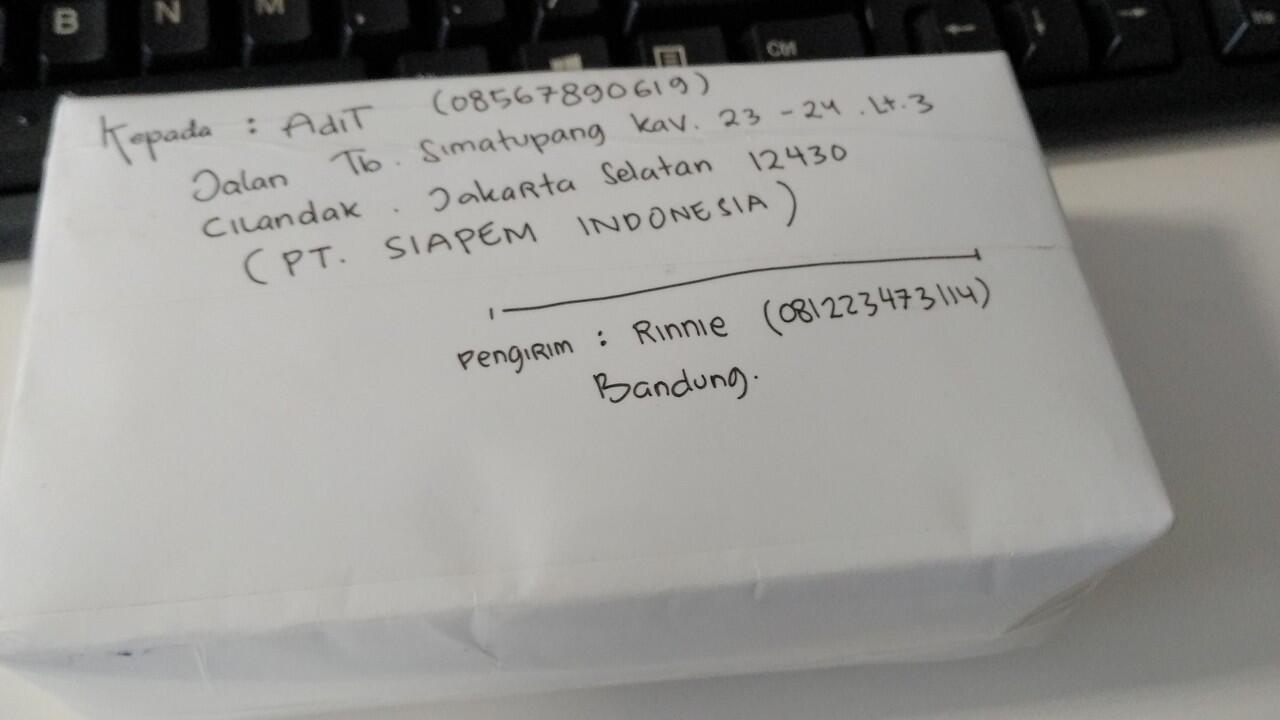 B N M
Ctrl
← ↓ →
Kepada : AdiT (08567890619)
Jalan Tb. Simatupang kav. 23 - 24 . Lt. 3
Cilandak . Jakarta Selatan 12430
(PT. SIAPEM INDONESIA)
Pengirim : Rinnie (081223473114)
Bandung.